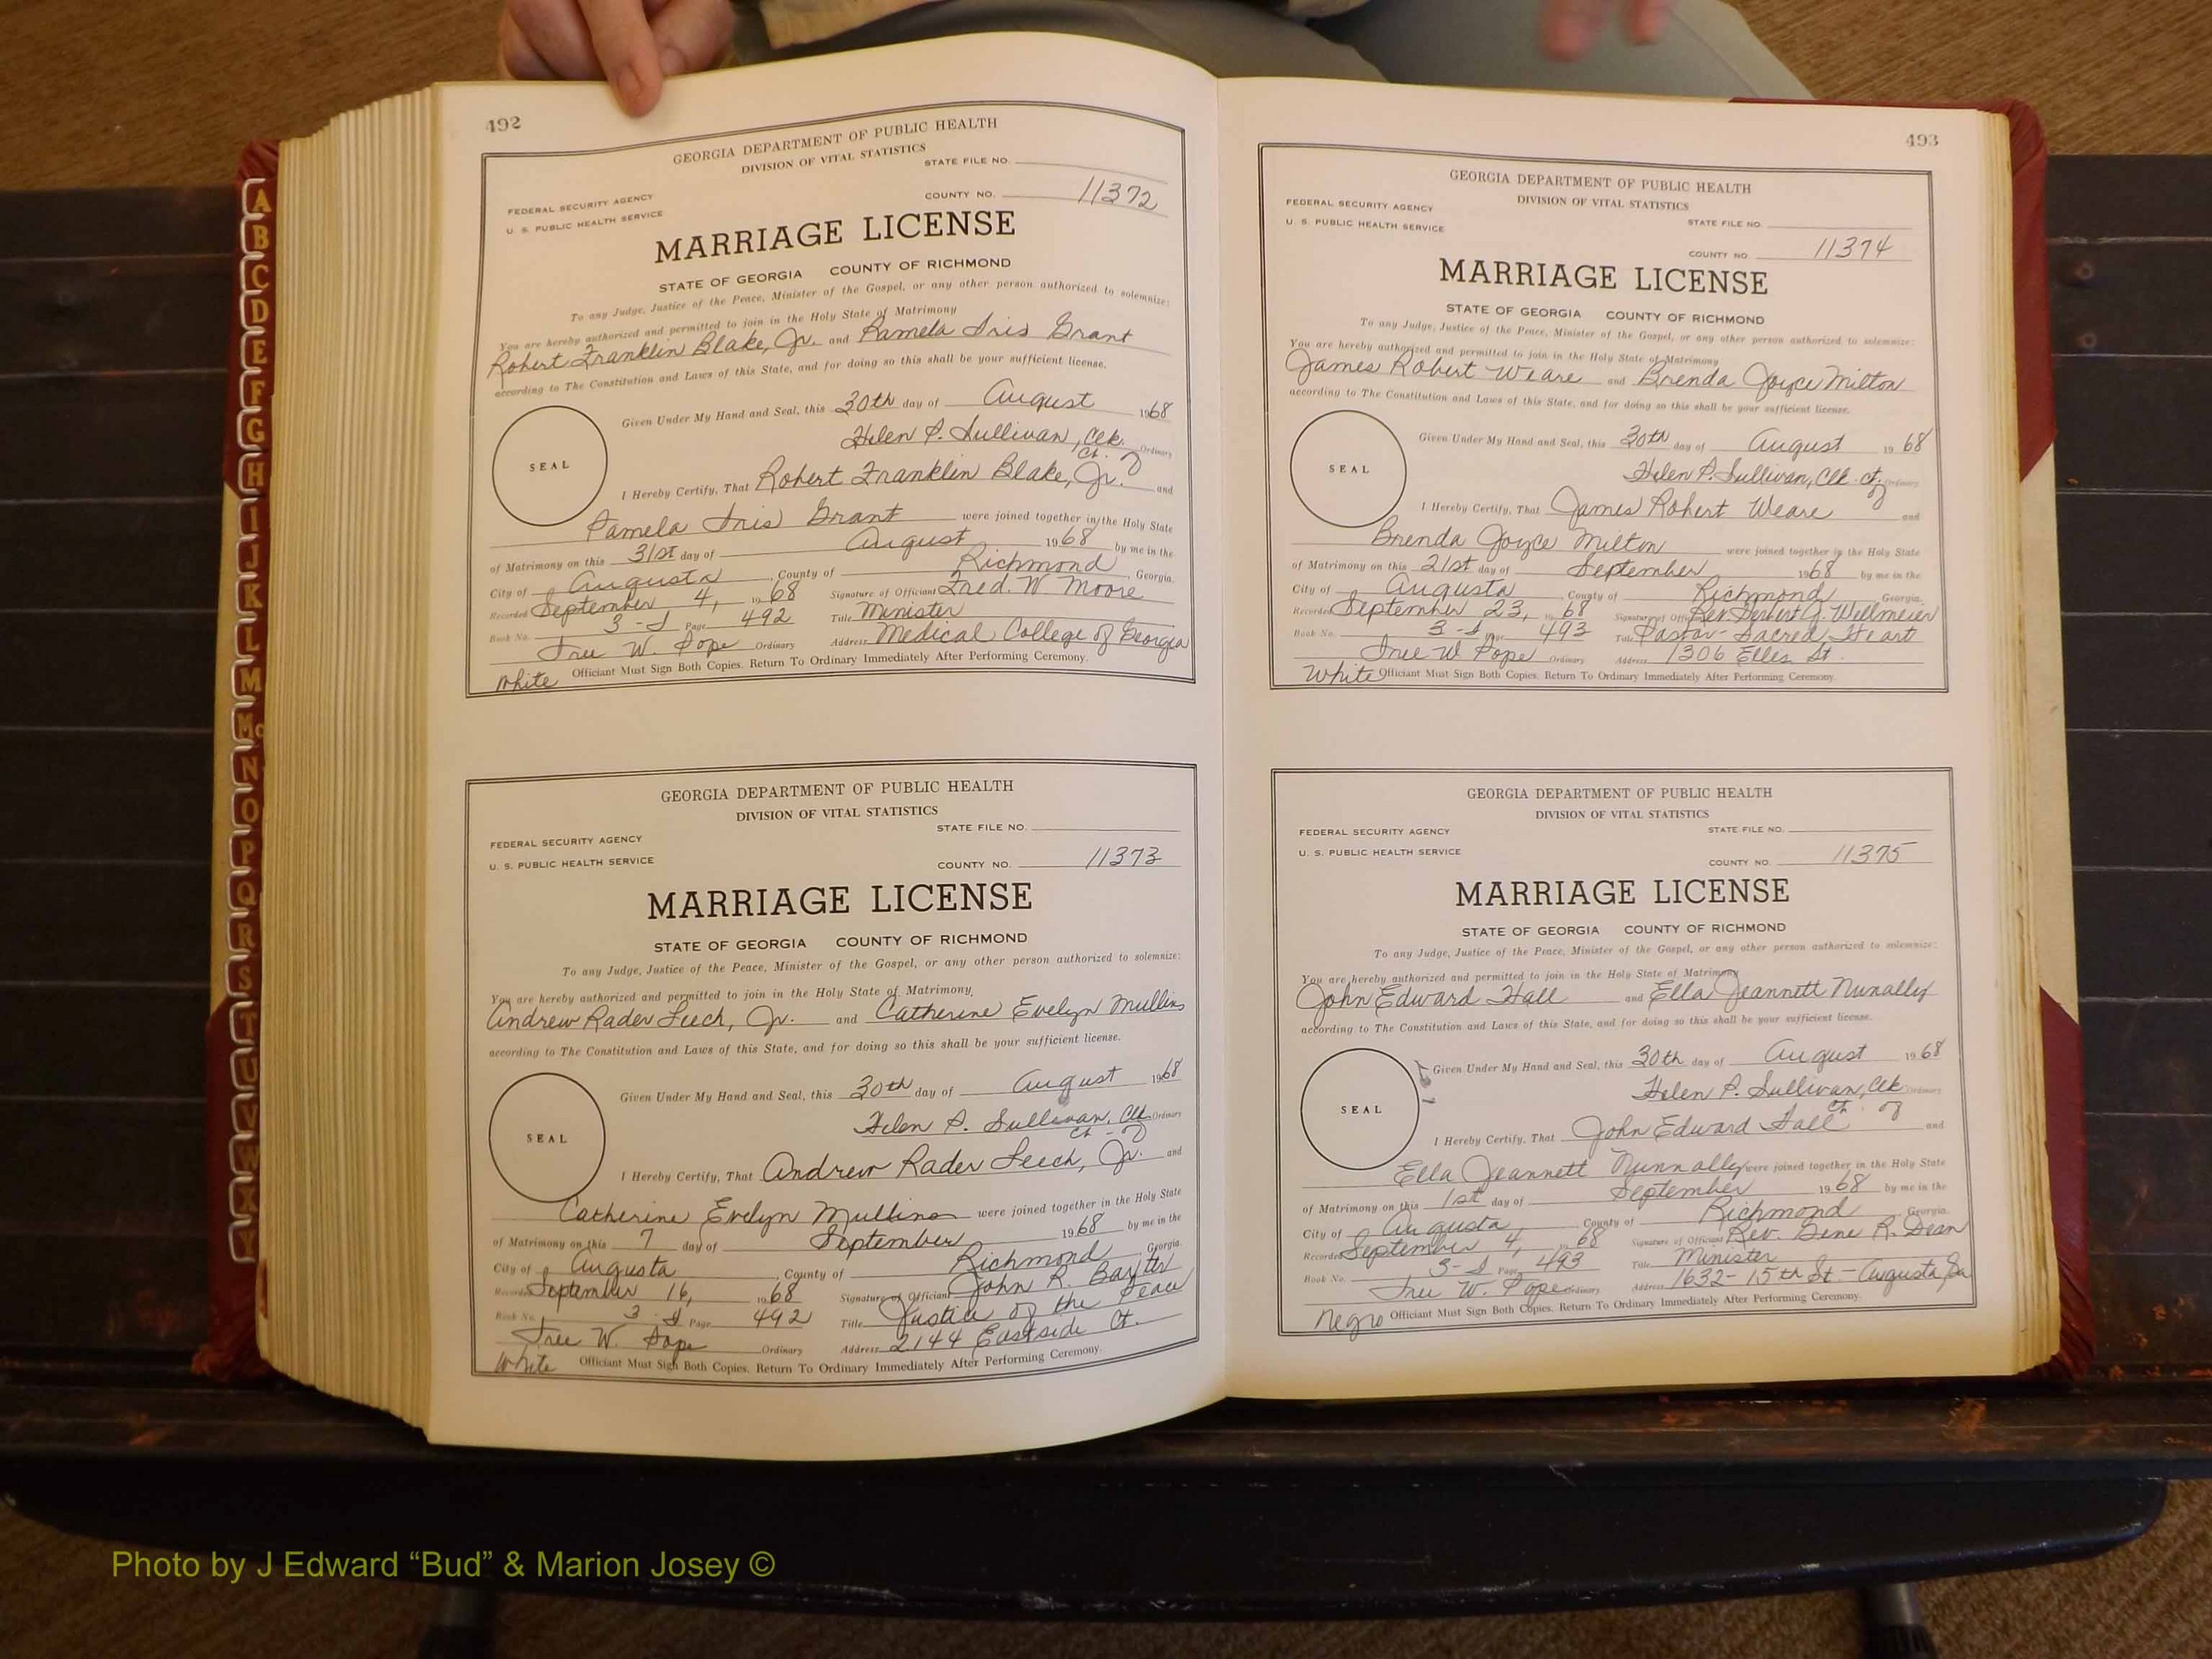 492
GEORGIA DEPARTMENT OF PUBLIC HEALTH
DIVISION OF VITAL STATISTICS
STATE FILE NO.
FEDERAL SECURITY AGENCY
U. S. PUBLIC HEALTH SERVICE
COUNTY NO. 11372
MARRIAGE LICENSE
STATE OF GEORGIA COUNTY OF RICHMOND
To any Judge, Justice of the Peace, Minister of the Gospel, or any other person authorized to solemnize:
You are hereby authorized and permitted to join in the Holy State of Matrimony
Robert Franklin Blake, Jr. and Pamela Iris Grant
according to The Constitution and Laws of this State, and for doing so this shall be your sufficient license.
Given Under My Hand and Seal, this 30th day of August 1968
Helen P. Sullivan, Clk. Ordinary
Ct. O
SEAL
I Hereby Certify, That Robert Franklin Blake, Jr. and
Pamela Iris Grant were joined together in the Holy State
of Matrimony on this 31st day of August 1968 by me in the
City of Augusta, County of Richmond, Georgia.
Recorded September 4, 1968 Signature of Officiant Fred. W. Moore
Book No. 3-S Page 492 Title Minister
Tree W. Pope Ordinary Address Medical College of Georgia
Officiant Must Sign Both Copies. Return To Ordinary Immediately After Performing Ceremony.
White
GEORGIA DEPARTMENT OF PUBLIC HEALTH
DIVISION OF VITAL STATISTICS
STATE FILE NO.
FEDERAL SECURITY AGENCY
U. S. PUBLIC HEALTH SERVICE
COUNTY NO. 11373
MARRIAGE LICENSE
STATE OF GEORGIA COUNTY OF RICHMOND
To any Judge, Justice of the Peace, Minister of the Gospel, or any other person authorized to solemnize:
You are hereby authorized and permitted to join in the Holy State of Matrimony
Andrew Rader Leech, Jr. and Catherine Evelyn Mullins
according to The Constitution and Laws of this State, and for doing so this shall be your sufficient license.
Given Under My Hand and Seal, this 30th day of August 1968
Helen P. Sullivan, Clk Ordinary
Ct - O
SEAL
I Hereby Certify, That Andrew Rader Leech, Jr. and
Catherine Evelyn Mullins were joined together in the Holy State
of Matrimony on this 7 day of September 1968 by me in the
City of Augusta, County of Richmond, Georgia.
Recorded September 16, 1968 Signature of Officiant John R. Baxter
Book No. 3-S Page 492 Title Justice of the Peace
Tree W. Pope Ordinary Address 2144 Eastside Ct.
White Officiant Must Sign Both Copies. Return To Ordinary Immediately After Performing Ceremony.
493
GEORGIA DEPARTMENT OF PUBLIC HEALTH
DIVISION OF VITAL STATISTICS
FEDERAL SECURITY AGENCY
STATE FILE NO.
U. S. PUBLIC HEALTH SERVICE
COUNTY NO. 11374
MARRIAGE LICENSE
STATE OF GEORGIA COUNTY OF RICHMOND
To any Judge, Justice of the Peace, Minister of the Gospel, or any other person authorized to solemnize:
You are hereby authorized and permitted to join in the Holy State of Matrimony
James Robert Weare and Brenda Joyce Milton
according to The Constitution and Laws of this State, and for doing so this shall be your sufficient license.
Given Under My Hand and Seal, this 30th day of August 1968
Helen P. Sullivan, Clk. Ct. O Ordinary
SEAL
I Hereby Certify, That James Robert Weare and
Brenda Joyce Milton were joined together in the Holy State
of Matrimony on this 21st day of September 1968 by me in the
City of Augusta, County of Richmond, Georgia.
Recorded September 23, 1968 Signature of Officiant Rev. Herbert J. Wellmeier
Book No. 3-S Page 493 Title Pastor - Sacred Heart
Tree W Pope Ordinary Address 1306 Ellis St.
White Officiant Must Sign Both Copies. Return To Ordinary Immediately After Performing Ceremony.
GEORGIA DEPARTMENT OF PUBLIC HEALTH
DIVISION OF VITAL STATISTICS
FEDERAL SECURITY AGENCY
STATE FILE NO.
U. S. PUBLIC HEALTH SERVICE
COUNTY NO. 11375
MARRIAGE LICENSE
STATE OF GEORGIA COUNTY OF RICHMOND
To any Judge, Justice of the Peace, Minister of the Gospel, or any other person authorized to solemnize:
You are hereby authorized and permitted to join in the Holy State of Matrimony
John Edward Hall and Ella Jeannett Nunally
according to The Constitution and Laws of this State, and for doing so this shall be your sufficient license.
Given Under My Hand and Seal, this 30th day of August 1968
Helen P. Sullivan, Clk Ordinary
Ct. O
SEAL
I Hereby Certify, That John Edward Hall and
Ella Jeannett Nunnally were joined together in the Holy State
of Matrimony on this 1st day of September 1968 by me in the
City of Augusta, County of Richmond, Georgia.
Recorded September 4, 1968 Signature of Officiant Rev. Gene R. Dean
Book No. 3-S Page 493 Title Minister
Tree W. Pope Ordinary Address 1632-15th St. - Augusta, Ga
Negro Officiant Must Sign Both Copies. Return To Ordinary Immediately After Performing Ceremony.
A
B
C
D
E
F
G
H
I
J
K
L
M
Mc
N
O
P
Q
R
S
T
U
V
W
X
Y
Photo by J Edward “Bud” & Marion Josey ©